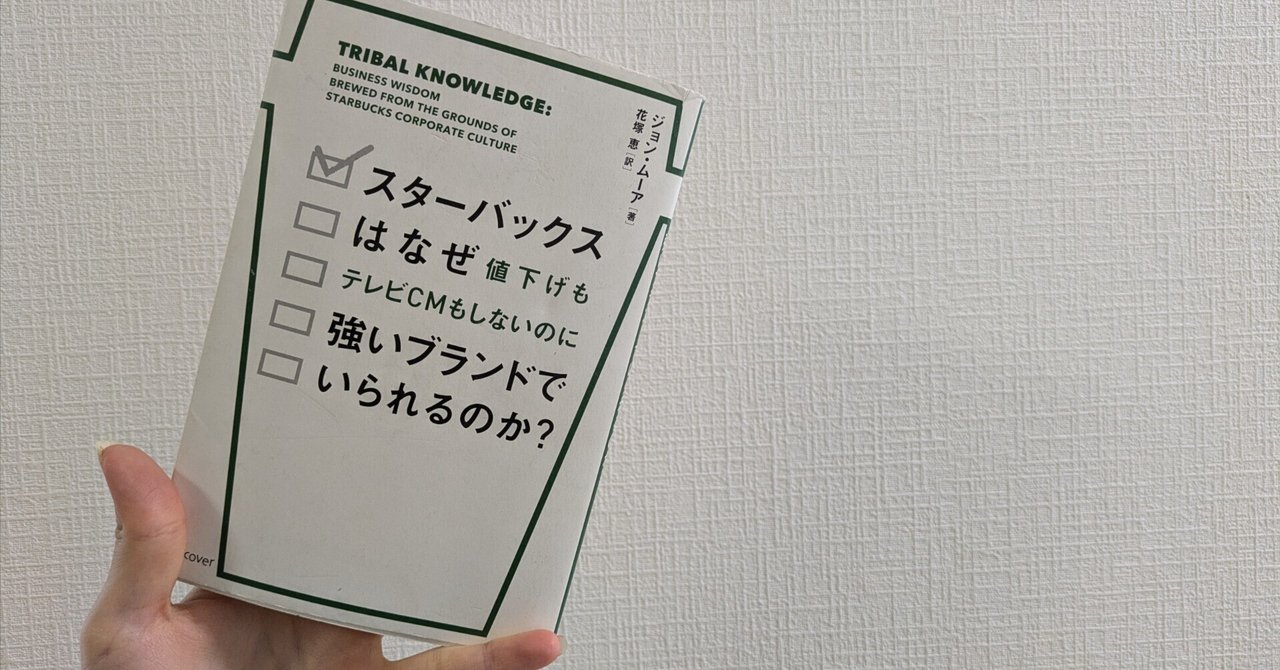 TRIBAL KNOWLEDGE:
BUSINESS WISDOM
BREWED FROM THE GROUNDS OF
STARBUCKS CORPORATE CULTURE
ジョン・ムーア[著]
花塚 恵[訳]
スターバックス
はなぜ値下げも
テレビCMもしないのに
強いブランドで
いられるのか?
cover